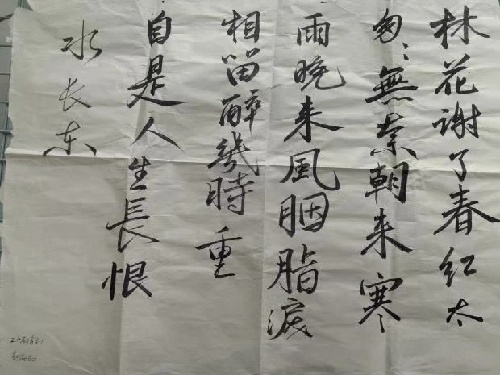 林花谢了春红太
匆匆無奈朝来寒
雨晚来風胭脂淚
相留醉幾時重
自是人生長恨
水长东